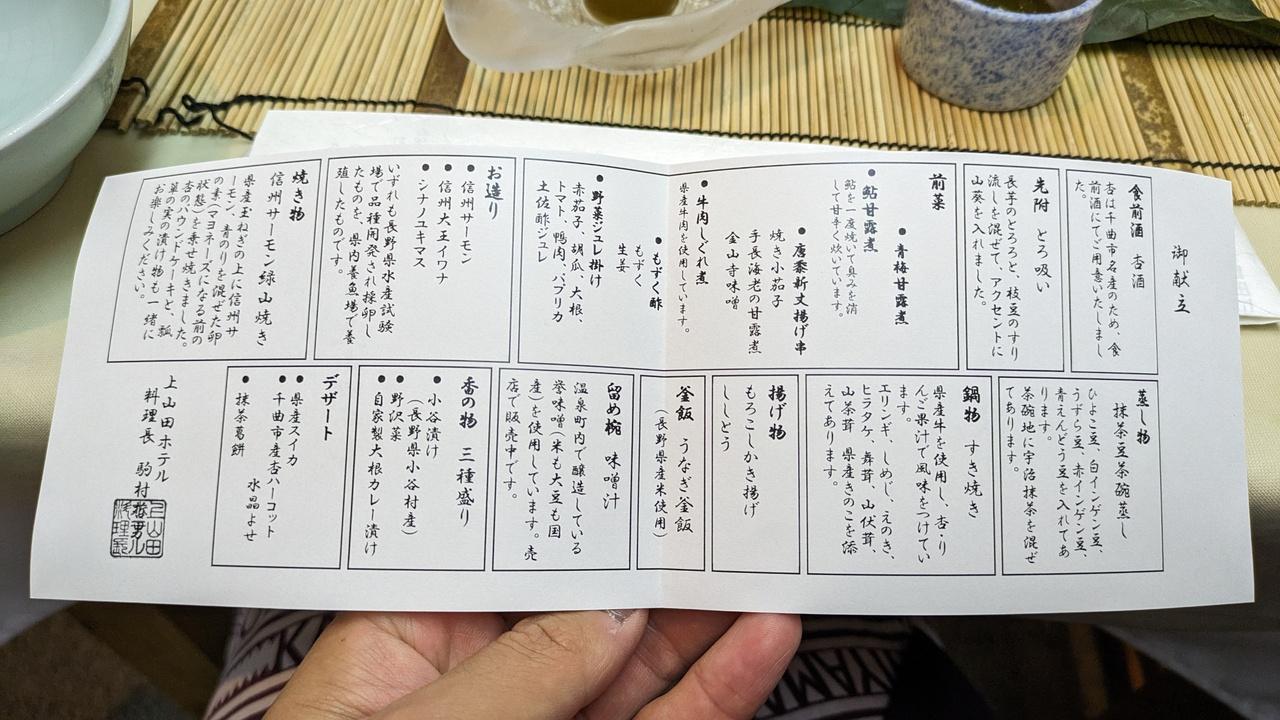 御献立
食前酒 杏酒
杏は千曲市名産のため、食
前酒にてご用意いたしまし
た。
先附 とろ吸い
長芋のとろろと、枝豆のすり
流しを混ぜて、アクセントに
山葵を入れました。
前菜
●青梅甘露煮
●鮎甘露煮
鮎を一度焼いて臭みを消
して甘辛く炊いています。
●唐黍新丈揚げ串
焼き小茄子
手長海老の甘露煮
金山寺味噌
●牛肉しぐれ煮
県産牛肉を使用しています。
●もずく酢
もずく
生姜
●野菜ジュレ掛け
赤茄子、胡瓜、大根、
トマト、鴨肉、パプリカ
土佐酢ジュレ
お造り
●信州サーモン
●信州大王イワナ
●シナノユキマス
いずれも長野県水産試験
場で品種開発され採卵し
たものを、県内養魚場で養
殖したものです。
焼き物
信州サーモン緑山焼き
県産玉ねぎの上に信州サ
ーモン、青のりを混ぜた卵
の素(マヨネーズになる前の
状態)を乗せ焼きました。
杏のパウンドケーキと、瓢
菓の実の漬け物も一緒に
お楽しみください。
蒸し物
抹茶豆茶碗蒸し
ひよこ豆、白インゲン豆、
うずら豆、赤インゲン豆、
青えんどう豆を入れてあ
ります。
茶碗地に宇治抹茶を混ぜ
てあります。
鍋物 すき焼き
県産牛を使用し、杏・り
んご果汁で風味をつけてい
ます。
エリンギ、しめじ、えのき、
ヒラタケ、舞茸、山伏茸、
山茶茸 県産きのこを添
えてあります。
揚げ物
もろこしかき揚げ
ししとう
釜飯 うなぎ釜飯
(長野県産米使用)
留め椀 味噌汁
温泉町内で醸造している
誉味噌(米も大豆も国
産)を使用しています。売
店で販売中です。
香の物 三種盛り
●小谷漬け
(長野県小谷村産)
●野沢菜
●自家製大根カレー漬け
デザート
●県産スイカ
●千曲市産杏ハーコット
水晶よせ
●抹茶葛餅
上山田ホテル
料理長 駒村